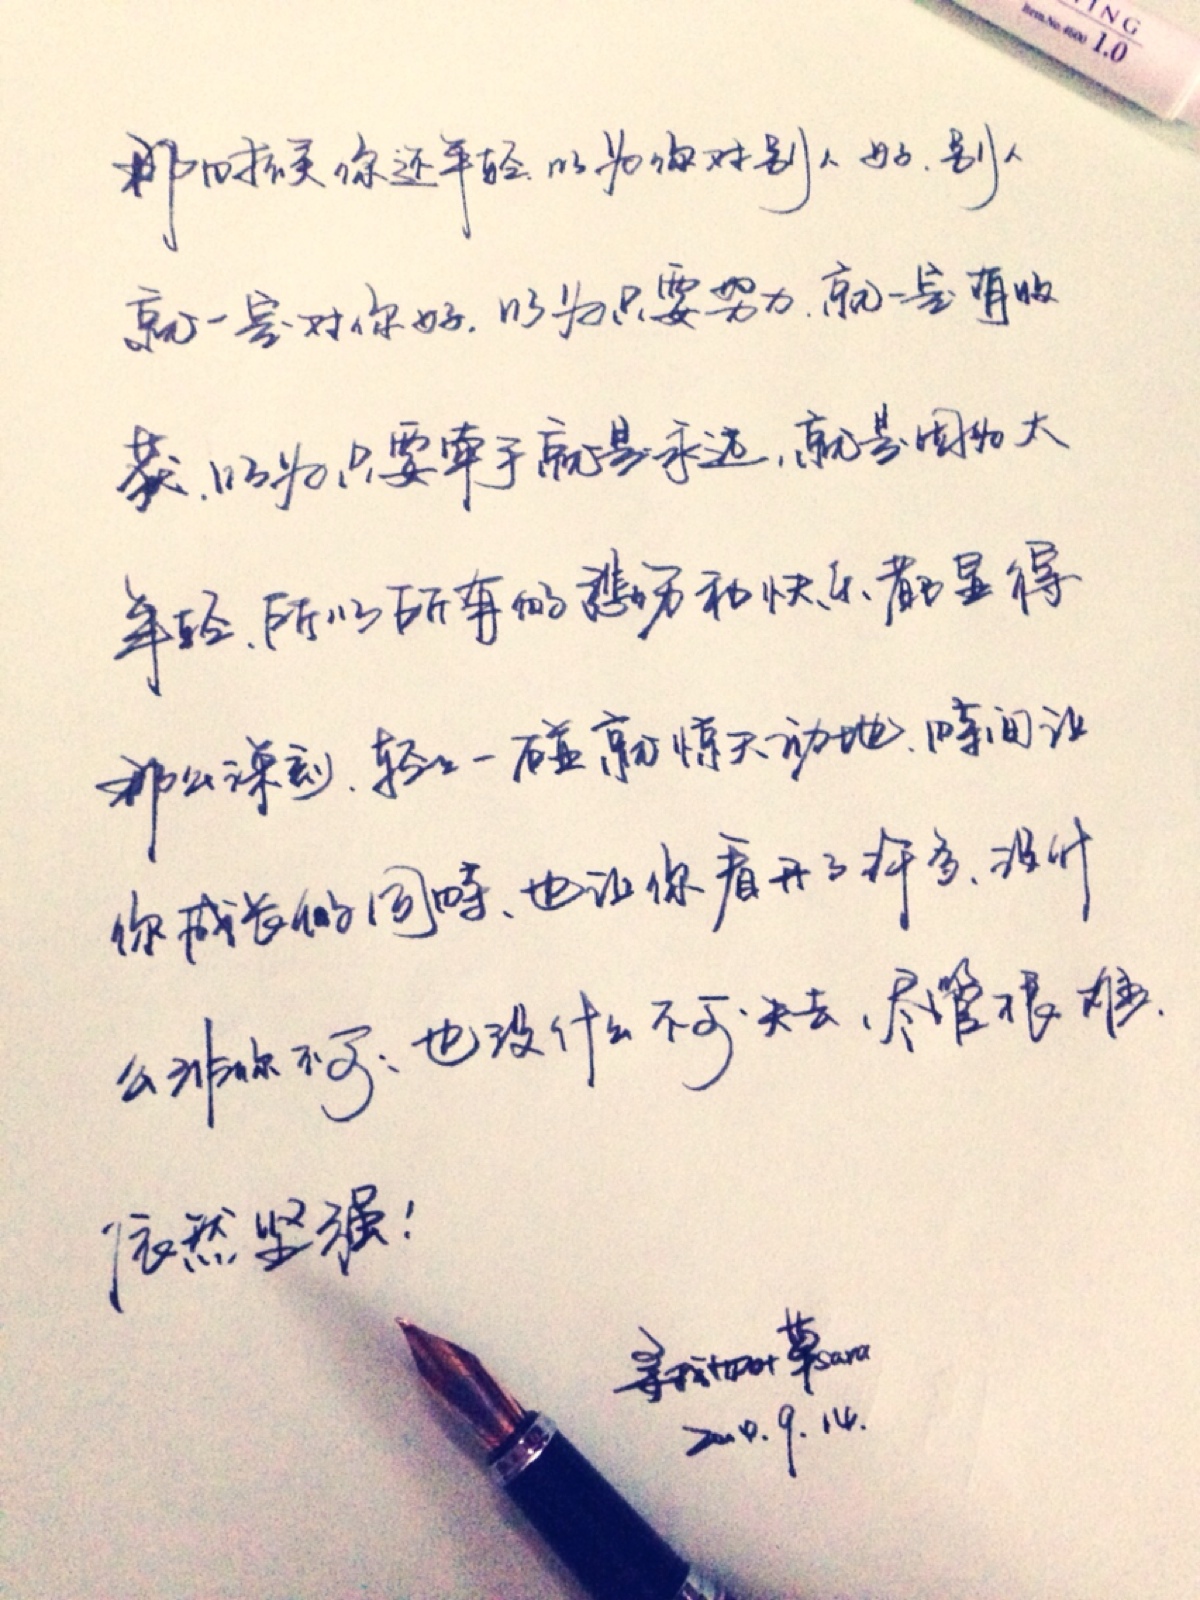 TING
Item.No.4600 1.0
那时候你还年轻.以为你对别人好.别人
就一定对你好.以为只要努力.就一定有收
获.以为只要牵手就是永远.就是因为太
年轻.所以所有的悲伤和快乐都显得
那么深刻.轻轻一碰就惊天动地.时间让
你成长的同时、也让你看开了许多、没什
么非你不可、也没什么不可失去、尽管很难.
依然坚强!
草sara
9.14.